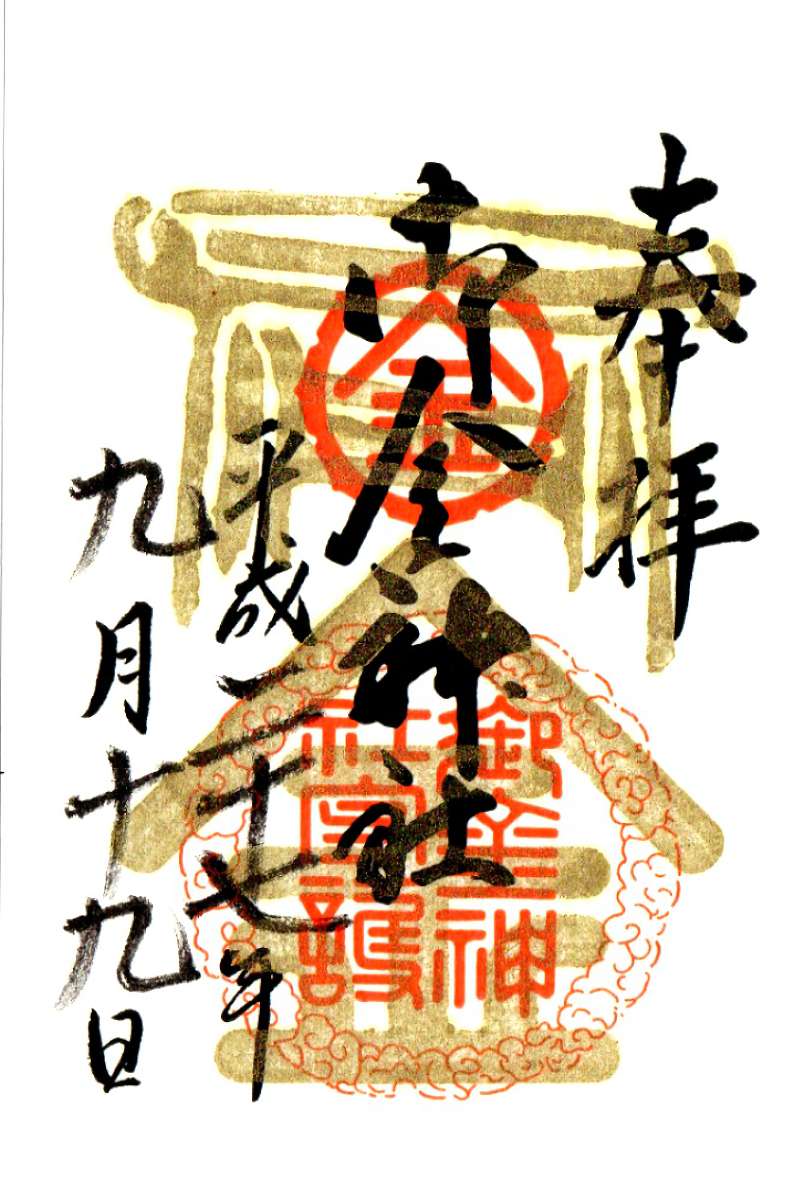 奉拝
御金神社
平成二十七年
九月十九日
金
御金神
社守護